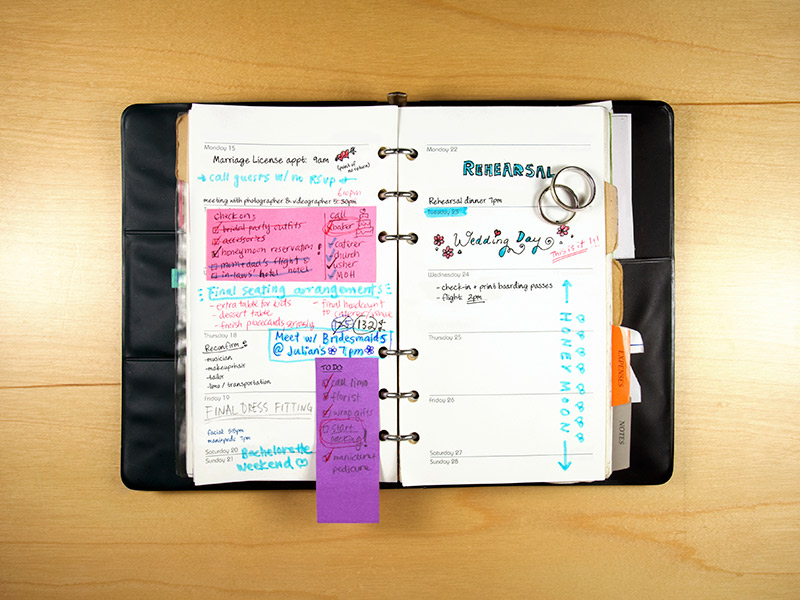 Monday 15
Marriage License appt: 9am
(point of no return)
call guests w/ no RSVP
6:00pm
meeting with photographer & videographer 5:30pm
check on:
bridal party outfits
accessories
honeymoon reservation!
mom + dad's flight
in-laws' hotel
call
baker
caterer
church
usher
MOH
Final seating arrangements
- extra table for kids
- dessert table
- finish placecards seriously
- final headcount to caterer/venue
125 132
Meet w/ Bridesmaids
@ Julian's 7pm
Thursday 18
Reconfirm
-musician
-makeup/hair
-tailor
-limo / transportation
Friday 19
FINAL DRESS FITTING
facial 5:15pm
mani/pedi 7pm
Saturday 20
Sunday 21
Bachelorette
Weekend
TO DO
call limo
florist
wrap gifts
start
packing!
manicure
pedicure
Monday 22
REHEARSAL
Rehearsal dinner 7pm
Tuesday 23
Wedding Day
This is it!!
Wednesday 24
- check-in + print boarding passes
- flight: 2pm
HONEYMOON
Thursday 25
Friday 26
Saturday 27
Sunday 28
EXPENSES
NOTES